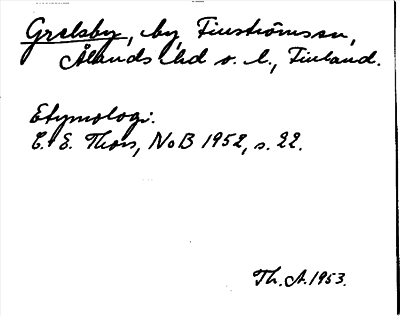 Grelsby, by, Finströms sn,
Ålands hd o. l., Finland.
Etymologi:
C. E. Thors, NoB 1952, s. 22.
Th. A. 1953.